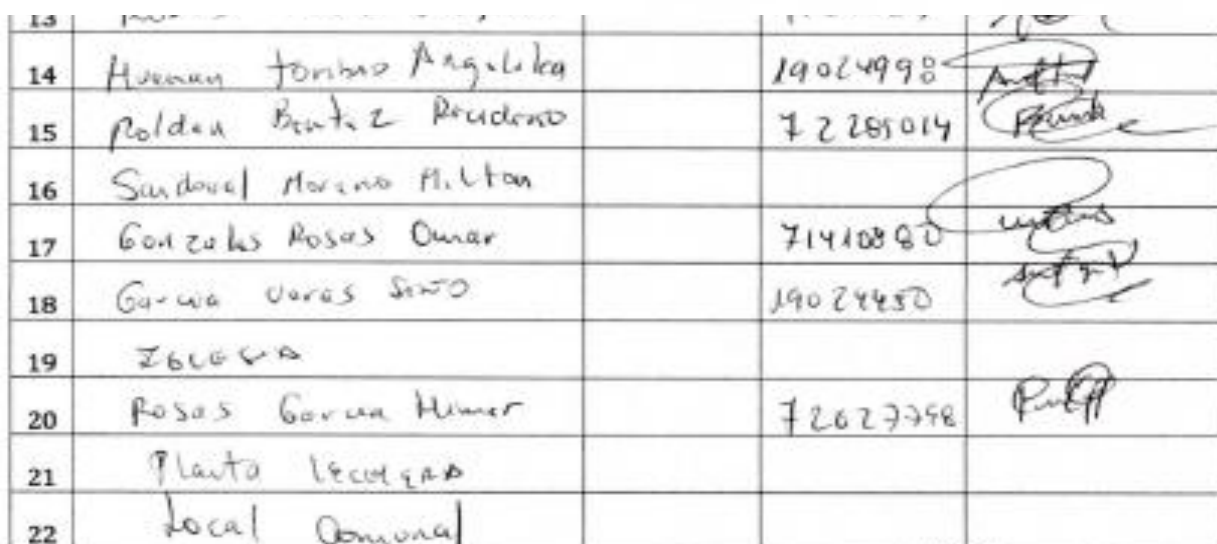 13
14 Huaman Toribio Angelica 19024998
15 Roldan 72289014
16 Sandoval Moreno Milton
17 Gonzales Rosas Omar 71410880
18 Garcia Varas Sixto 19024450
19 IGLESIA
20 Rosas Garcia Himer 72627798
21 Planta LECHERA
22 Local Comunal